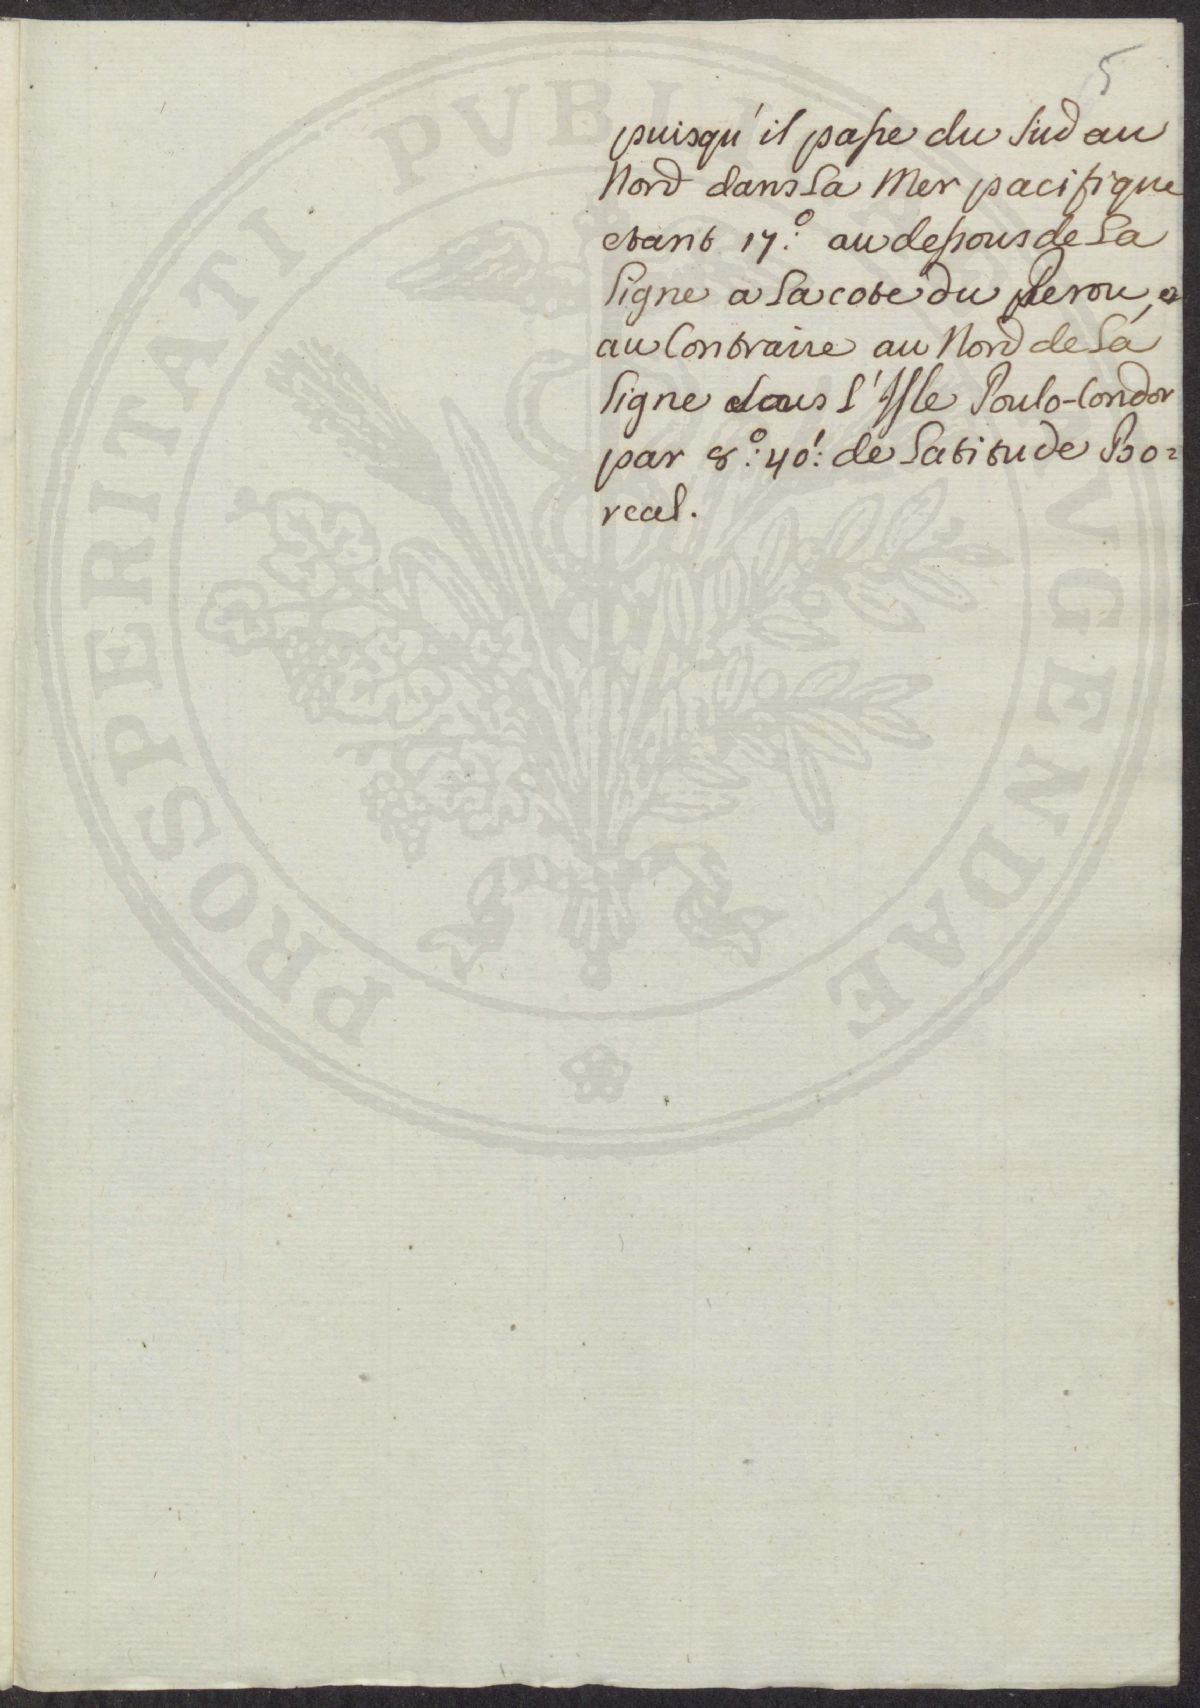 5
puisqu'il passe du Sud au
Nord dans la Mer pacifique
etant 17.° au dessous de la
ligne a la cote du Perou, et
au Contraire au Nord de la
ligne dans l'Isle Poulo-Condor
par 8.° 40.' de latitude Bo=
real.
PROSPERITATI PVBLI VGENDAE